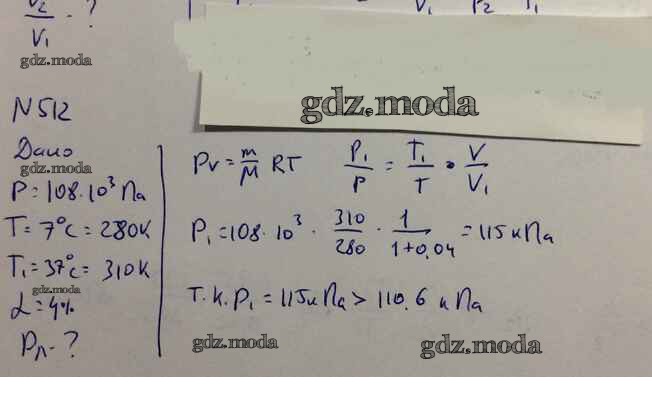 V₂/V₁ - ?
V₁ P₂ T₁
gdz.moda
gdz.moda
N 512
Дано
gdz.moda
P = 108·10³ Па
T = 7°C = 280K
T₁ = 37°C = 310K
gdz.moda
α = 4%
Pл - ?
PV = m/M RT P₁/P = T₁/T · V/V₁
P₁ = 108·10³ · 310/280 · 1/(1+0,04) = 115 кПа
Т.к. P₁ = 115 кПа > 110,6 кПа
gdz.moda
gdz.moda